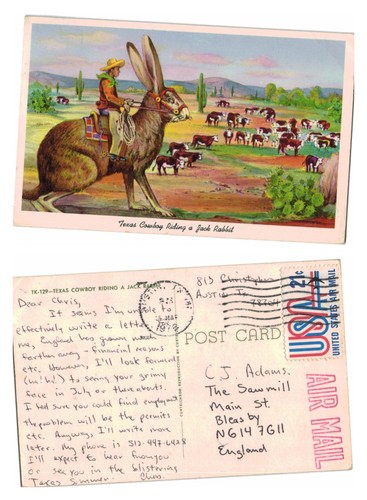 Texas Cowboy Riding a Jack Rabbit
TK-129—TEXAS COWBOY RIDING A JACK RABBIT
Dear Chris,
It seems I'm unable to
effectively write a letter
me, England has grown much
farther away - financial reasons
etc. However, I'll look forward
to seeing your grimy
face in July or thereabouts.
I bet sure you could find employment
the problem will be the permits
etc. Anyway, I'll write more
later. My phone is 512-447-6428
I'll expect to hear from you
or see you in the blistering
Texas Summer. Chas.
813 Christopher
Austin Tx
78704
AUSTIN, TX
1978
POST CARD
21c
USA
UNITED STATES AIR MAIL
AIR MAIL
C J Adams.
The Sawmill
Main St.
Bleasby
NG14 7GH
England